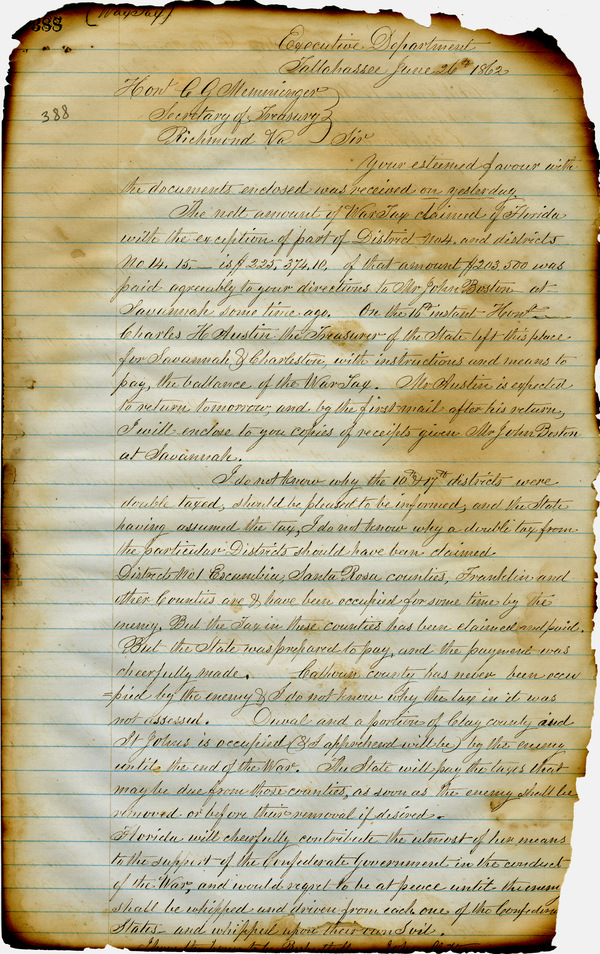 388 (War Tax)
Executive Department
Tallahassee June 26th 1862
388
Honl C G Memminger
Secretary of Treasury
Richmond Va } Sir
Your esteemed favour with
the documents enclosed was received on yesterday
The nett amount of War Tax claimed of Florida
with the exception of part of District No 4. and districts
No 14. 15. — is $225,374.10, of that amount $203.500 was
paid agreeably to your directions to Mr John Boston at
Savannah some time ago. On the 16th instant Honl
Charles H Austin the Treasurer of the State left this place
for Savannah & Charleston with instructions and means to
pay, the ballance of the War Tax. Mr Austin is expected
to return tomorrow, and by the first mail after his return,
I will enclose to you copies of receipts given Mr John Boston
at Savannah.
I do not know why the 10th & 17th districts were
double taxed, should be pleased to be informed, and the State
having assumed the tax, I do not know why a double tax from
the particular Districts should have been claimed
Districts No 1 Escambia, Santa Rosa counties, Franklin and
other Counties are & have been occupied for some time by the
enemy. But the Tax in these counties has been claimed and paid.
But the State was prepared to pay, and the payment was
cheerfully made. Calhoun county has never been occu
=pied by the enemy & I do not know why the tax in it was
not assessed. Duval and a portion of Clay county and
St Johns is occupied (& I apprehend will be) by the enemy
until the end of the War. The State will pay the taxes that
may be due from those counties, as soon as the enemy shall be
removed or before their removal if desired.
Florida will cheerfully contribute the utmost of her means
to the support of the Confederate Government in the conduct
of the War, and would regret to be at peace until the enemy
shall be whipped and driven from each one of the Confedera
States and whipped upon their own Soil.